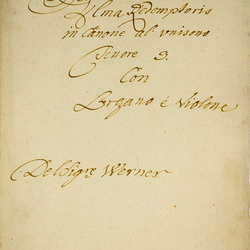 Alma Redemptoris
in Canone al unisono
Tenore 2.
Con
Organo è Violone
Del Sig:re Werner